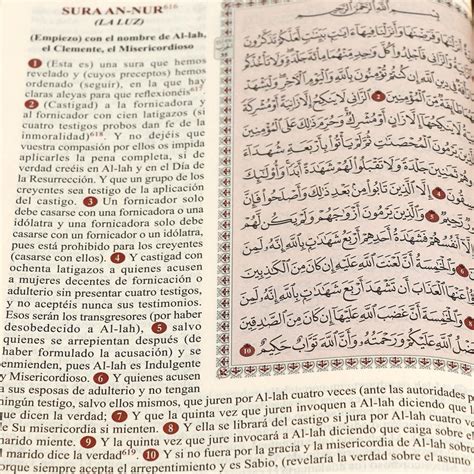 SURA AN-NUR⁶¹⁶
(LA LUZ)
(Empiezo) con el nombre de Al-lah,
el Clemente, el Misericordioso
1 (Esta es) una sura que hemos
revelado y (cuyos preceptos) hemos
ordenado (seguir), en la que hay
claras aleyas para que reflexionéis⁶¹⁷.
2 (Castigad) a la fornicadora y
al fornicador con cien latigazos (si
cuatro testigos probos dan fe de la
inmoralidad)⁶¹⁸. Y no dejéis que
vuestra compasión por ellos os impida
aplicarles la pena completa, si de
verdad creéis en Al-lah y en el Día de
la Resurrección. Y que un grupo de los
creyentes sea testigo de la aplicación
del castigo. 3 Un fornicador solo
debe casarse con una fornicadora o una
idólatra y una fornicadora solo debe
casarse con un fornicador o un idólatra,
pues está prohibido para los creyentes
(casarse con ellos). 4 Y castigad con
ochenta latigazos a quienes acusen
a mujeres decentes de fornicación o
adulterio sin presentar cuatro testigos,
y no aceptéis nunca sus testimonios.
Esos serán los transgresores (por haber
desobedecido a Al-lah), 5 salvo
quienes se arrepientan después (de
haber formulado la acusación) y se
enmienden, pues Al-lah es Indulgente
y Misericordioso. 6 Y quienes acusen
a sus esposas de adulterio y no tengan
ningún testigo, salvo ellos mismos, que juren por Al-lah cuatro veces (ante las autoridades
que dicen la verdad; 7 Y que la quinta vez que juren invoquen a Al-lah diciendo que
Su misericordia si mienten. 8 Y ella se librará del castigo si jura por Al-lah cuatro
marido miente. 9 Y la quinta vez que jure invocará a Al-lah diciendo que caiga sobre
marido dice la verdad⁶¹⁹. 10 Y si no fuera por la gracia y la misericordia de Al-lah
porque siempre acepta el arrepentimiento y es Sabio, (revelaría la verdad sobre el
بِسْمِ اللَّهِ الرَّحْمَٰنِ الرَّحِيمِ
وَفَرَضْنَاهَا وَأَنزَلْنَا فِيهَا آيَاتٍ بَيِّنَاتٍ لَّعَلَّكُمْ تَذَكَّرُونَ
وَالزَّانِي فَاجْلِدُوا كُلَّ وَاحِدٍ مِّنْهُمَا مِائَةَ جَلْدَةٍ
اللَّهِ إِن كُنتُمْ تُؤْمِنُونَ بِاللَّهِ وَالْيَوْمِ الْآخِرِ وَلْيَشْهَدْ
مِّنَ الْمُؤْمِنِينَ 2 الزَّانِي لَا يَنكِحُ إِلَّا زَانِيَةً أَوْ مُشْرِكَةً
أَوْ مُشْرِكٌ وَحُرِّمَ ذَٰلِكَ عَلَى
الْمُحْصَنَاتِ ثُمَّ لَمْ يَأْتُوا بِأَرْبَعَةِ شُهَدَاءَ
جَلْدَةً وَلَا تَقْبَلُوا لَهُمْ شَهَادَةً أَبَدًا وَأُولَٰئِكَ
4 إِلَّا الَّذِينَ تَابُوا مِن بَعْدِ ذَٰلِكَ وَأَصْلَحُوا فَإِنَّ
5 وَالَّذِينَ يَرْمُونَ أَزْوَاجَهُمْ وَلَمْ يَكُن لَّهُمْ
أَنفُسُهُمْ فَشَهَادَةُ أَحَدِهِمْ أَرْبَعُ شَهَادَاتٍ بِاللَّهِ إِنَّهُ لَمِنَ
وَالْخَامِسَةُ أَنَّ لَعْنَتَ اللَّهِ عَلَيْهِ إِن كَانَ مِنَ الْكَاذِبِينَ
الْعَذَابَ أَن تَشْهَدَ أَرْبَعَ شَهَادَاتٍ بِاللَّهِ إِنَّهُ
أَنَّ غَضَبَ اللَّهِ عَلَيْهَا إِن كَانَ مِنَ الصَّادِقِينَ
فَضْلُ اللَّهِ عَلَيْكُمْ وَرَحْمَتُهُ وَأَنَّ اللَّهَ تَوَّابٌ حَكِيمٌ 10